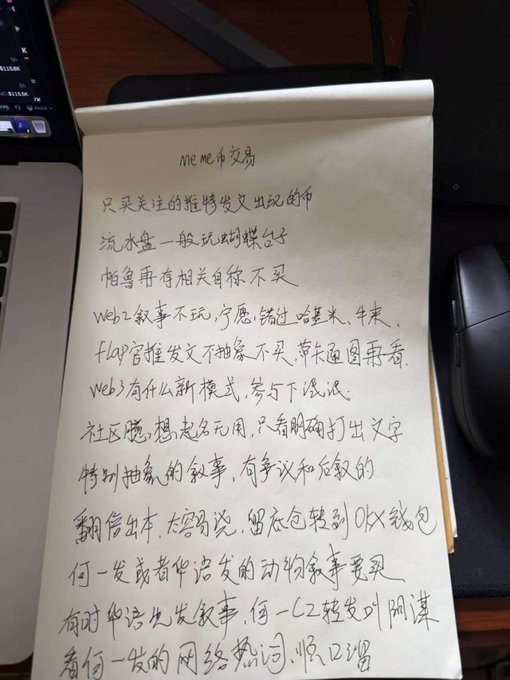 K
$115.8K
5h
$115.8K
meme币交易
只买关注的推特发文出现的币
流水盘一般玩蝴蝶台子
帕鲁再存相关自称不买
web2叙事不玩,宁愿错过哈基米、牛来、
flap官推发文不抽象不买,带卡通图再看.
web3有什么新模式,参与下混混.
社区臆想起名无用,只看明确打出文字
特别抽象的叙事,有争议和后叙的
翻倍出本,大容易浇,留底仓转到OKX钱包
何一发或者华语发的动物叙事要买
有时华语先发叙事,何一CZ转发叫阴谋
看何一发的网络热词,顺口溜